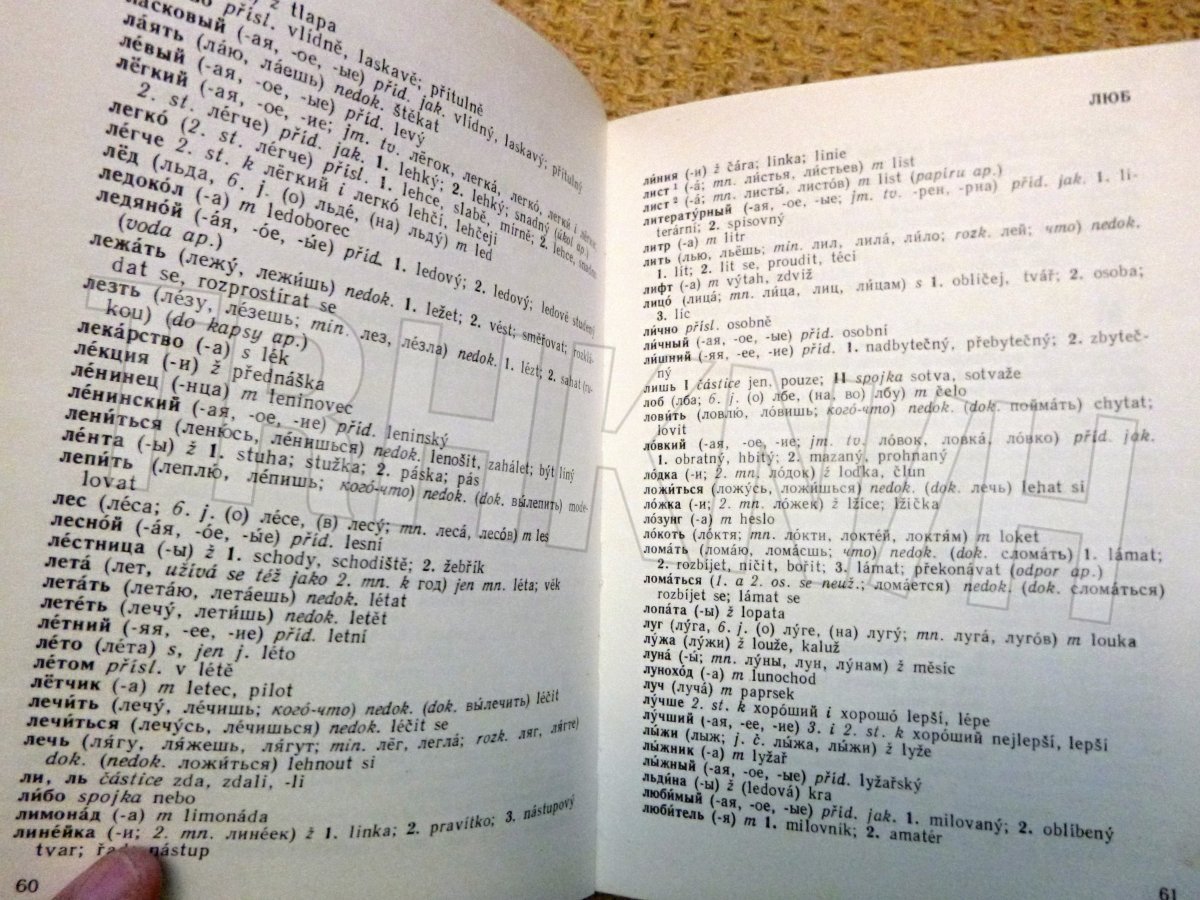 ž tlapa
přísl. vlídně, laskavě; přítulně
ласковый (-ая, -ое, -ые) příd. jak. vlídný, laskavý; přítulný
лаять (лаю, лаешь) nedok. štěkat
левый (-ая, -ое, -ые) příd. levý
лёгкий (-ая, -ое, -ие; jm. tv. лёгок, легка, легко, легки i лёгки;
2. st. легче) příd. jak. 1. lehký; 2. lehký; snadný (úkol ap.)
легко́ (2. st. ле́гче) přísl. 1. lehce, slabě, mírně; 2. lehce, snadno
ле́гче 2. st. k лёгкий i легко́ lehčí, lehčeji
лёд (льда, 6. j. (о) льде́, (на) льду́) m led
ледоко́л (-а) m ledoborec
ледяно́й (-а́я, -о́е, -ы́е) příd. 1. ledový; 2. ledový; ledově studený
(voda ap.)
лежа́ть (лежу́, лежи́шь) nedok. 1. ležet; 2. vést; směřovat; rozklá-
dat se, rozprostírat se
лезть (ле́зу, ле́зешь; min. лез, ле́зла) nedok. 1. lézt; 2. sahat (ru-
kou) (do kapsy ap.)
лека́рство (-а) s lék
ле́кция (-и) ž přednáška
ле́нинец (-нца) m leninovec
ле́нинский (-ая, -ое, -ие) příd. leninský
лени́ться (леню́сь, ле́нишься) nedok. lenošit, zahálet; být líný
ле́нта (-ы) ž 1. stuha; stužka; 2. páska; pás
лепи́ть (леплю́, ле́пишь; кого́-что) nedok. (dok. вы́лепить) mode-
lovat
лес (ле́са; 6. j. (о) ле́се, (в) лесу́; mn. леса́, лесо́в) m les
лесно́й (-а́я, -о́е, -ы́е) příd. lesní
ле́стница (-ы) ž 1. schody, schodiště; 2. žebřík
лета́ (лет, užívá se též jako 2. mn. k год) jen mn. léta; věk
лета́ть (лета́ю, лета́ешь) nedok. létat
лете́ть (лечу́, лети́шь) nedok. letět
ле́тний (-яя, -ее, -ие) příd. letní
ле́то (ле́та) s, jen j. léto
ле́том přísl. v létě
лётчик (-а) m letec, pilot
лечи́ть (лечу́, ле́чишь; кого́-что) nedok. (dok. вы́лечить) léčit
лечи́ться (лечу́сь, ле́чишься) nedok. léčit se
лечь (ля́гу, ля́жешь, ля́гут; min. лёг, легла́; rozk. ляг, ля́гте)
dok. (nedok. ложи́ться) lehnout si
ли, ль částice zda, zdali, -li
ли́бо spojka nebo
лимона́д (-а) m limonáda
лине́йка (-и; 2. mn. лине́ек) ž 1. linka; 2. pravítko; 3. nástupový
tvar; nástup
60
ЛЮБ
ли́ния (-и) ž čára; linka; linie
лист ¹ (-а́; mn. ли́стья, ли́стьев) m list
лист ² (-а́; mn. листы́, листо́в) m list (papíru ap.)
литерату́рный (-ая, -ое, -ые; jm. tv. -рен, -рна) příd. jak. 1. li-
terární; 2. spisovný
литр (-а) m litr
лить (лью, льёшь; min. лил, лила́, ли́ло; rozk. лей; что) nedok.
1. lít; 2. lít se, proudit, téci
лифт (-а) m výtah, zdviž
лицо́ (лица́; mn. ли́ца, лиц, ли́цам) s 1. obličej, tvář; 2. osoba;
3. líc
ли́чно přísl. osobně
ли́чный (-ая, -ое, -ые) příd. osobní
ли́шний (-яя, -ее, -ие) příd. 1. nadbytečný, přebytečný; 2. zbyteč-
ný
лишь I částice jen, pouze; II spojka sotva, sotvaže
лоб (лба; 6. j. (о) лбе, (на, во) лбу) m čelo
лови́ть (ловлю́, ло́вишь; кого́-что) nedok. (dok. пойма́ть) chytat;
lovit
ло́вкий (-ая, -ое, -ие; jm. tv. ло́вок, ловка́, ло́вко) příd. jak.
1. obratný, hbitý; 2. mazaný, prohnaný
ло́дка (-и; 2. mn. ло́док) ž loďka, člun
ложи́ться (ложу́сь, ложи́шься) nedok. (dok. лечь) lehat si
ло́жка (-и; 2. mn. ло́жек) ž lžíce; lžička
ло́зунг (-а) m heslo
ло́коть (ло́ктя; mn. ло́кти, локте́й, локтя́м) m loket
лома́ть (лома́ю, лома́ешь; что) nedok. (dok. слома́ть) 1. lámat;
2. rozbíjet, ničit, bořit; 3. lámat; překonávat (odpor ap.)
лома́ться (1. a 2. os. se neuž.; лома́ется) nedok. (dok. слома́ться)
rozbíjet se; lámat se
лопа́та (-ы) ž lopata
луг (лу́га, 6. j. (о) лу́ге, (на) лугу́; mn. луга́, луго́в) m louka
лу́жа (лу́жи) ž louže, kaluž
луна́ (-ы́; mn. лу́ны, лун, лу́нам) ž měsíc
лунохо́д (-а) m lunochod
луч (луча́) m paprsek
лу́чше 2. st. k хоро́ший i хорошо́ lepší, lépe
лу́чший (-ая, -ее, -ие) 3. i 2. st. k хоро́ший nejlepší, lepší
лы́жи (лыж; j. č. лы́жа, лы́жи) ž lyže
лы́жник (-а) m lyžař
лы́жный (-ая, -ое, -ые) příd. lyžařský
льди́на (-ы) ž (ledová) kra
люби́мый (-ая, -ое, -ые) příd. jak. 1. milovaný; 2. oblíbený
люби́тель (-я) m 1. milovník; 2. amatér
61